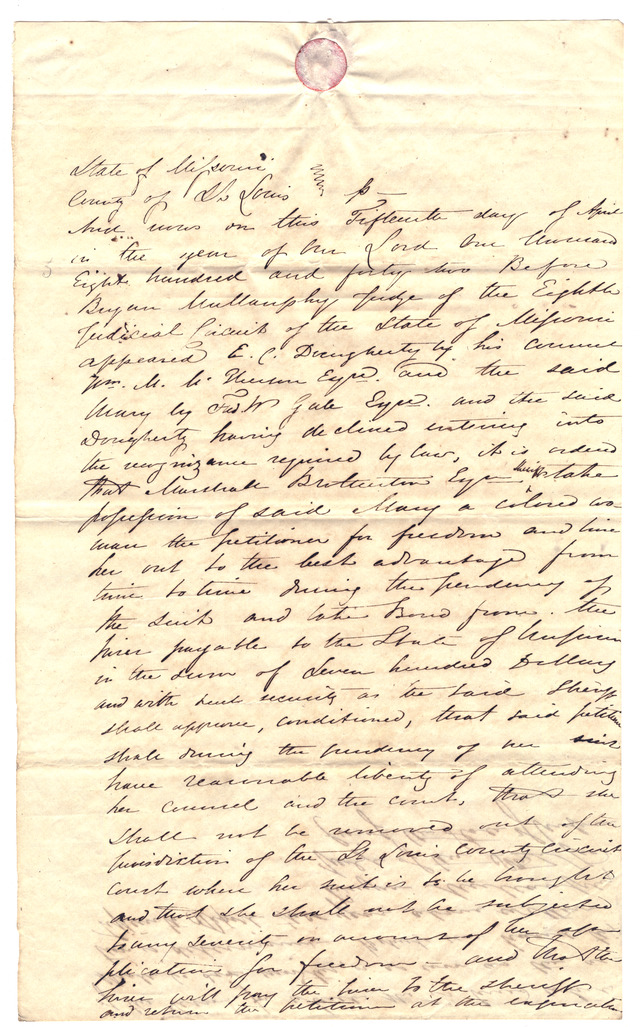 State of Missouri
County of St. Louis
And now on this Fifteenth day of April
in the year of Our Lord One thousand
Eight hundred and forty two Before
Bryan Mullanphy Judge of the Eighth
Judicial Circuit of the State of Missouri
appeared E. C. Dougherty by his counsel
Wm. M. Esqre. and the said
Mary by W Gale Esqre. and the said
Dougherty having declined entering into
the recognizance required by law, it is ordered
that Marshall Brotherton Esqr Sheriff take
possession of said Mary a colored wo-
man the petitioner for freedom and hire
her out to the best advantage from
time to time during the pendency of
the suit and take Bond from the
hirer payable to the State of Missouri
in the sum of Seven hundred Dollars
and with such security as the said Sheriff
shall approve, conditioned, that said petitioner
shall during the pendency of her suit
have reasonable liberty of attending
her counsel and the court, that she
shall not be removed out of the
Jurisdiction of the St Louis County circuit
court where her suit is to be brought
and that she shall not be subjected
to any severity on account of her ap-
plication for freedom - and that the
hirer will pay the hire to the sheriff
and return the petitioner at the expiration